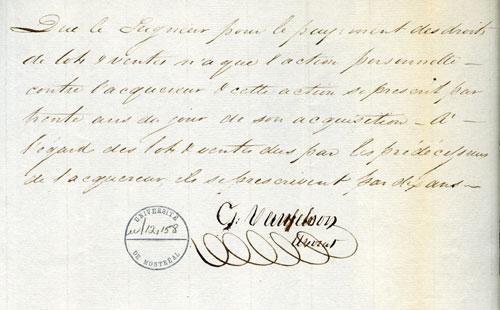 Que le Seigneur pour le payement des droits
de lots & ventes n'a que l'action personnelle –
contre l'acquereur & cette action se prescrit par
trente ans du jour de son acquisition – A' –
l'égard des lots & ventes dus par les prédécesseurs
de l'acquereur ils se prescrivent par dix ans –
G: Vanfelson
Avocat
UNIVERSITÉ
u/12,158
DE MONTRÉAL